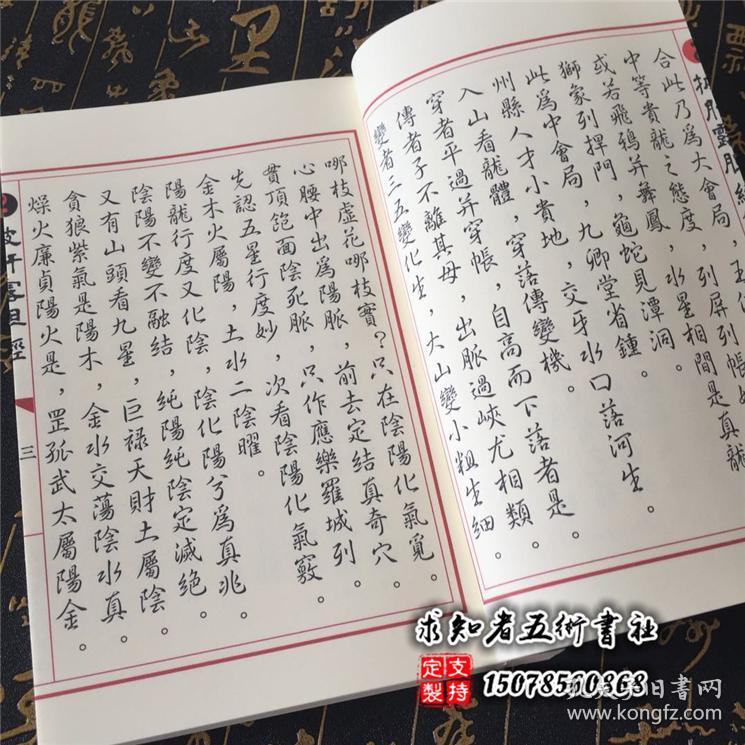 合此乃爲大會局，
中等貴龍之態度，列屏列帳
或若飛鴉并舞鳳，水星相間是真龍
獅象列捍門，龜蛇見潭洞。
此爲中會局，九卿堂省鍾。
州縣人才小貴地，交牙水口落河生。
入山看龍體，穿落傳變機。
穿者平過并穿帳，自高而下落者是。
傳者子不離其母，出脈過峽尤相類。
變者二五變化生，大山變小粗生細。
哪枝虛花哪枝實？只在陰陽化氣覓。
心腰中出爲陽脈，前去定結真奇穴。
貫頂飽面陰死脈，只作應樂羅城列。
先認五星行度妙，次看陰陽化氣竅。
金木火屬陽，土水二陰曜。
陽龍行度又化陰，陰化陽兮爲真兆。
陰陽不變不融結，純陽純陰定滅絕。
又有山頭看九星，巨禄天財土屬陰。
貪狼紫氣是陽木，金水交蕩陰水真。
燥火廉貞陽火是，罡孤武太屬陽金。
三
求知者五術書社
支持定製
15078510868
旧書网
www.kongfz.com